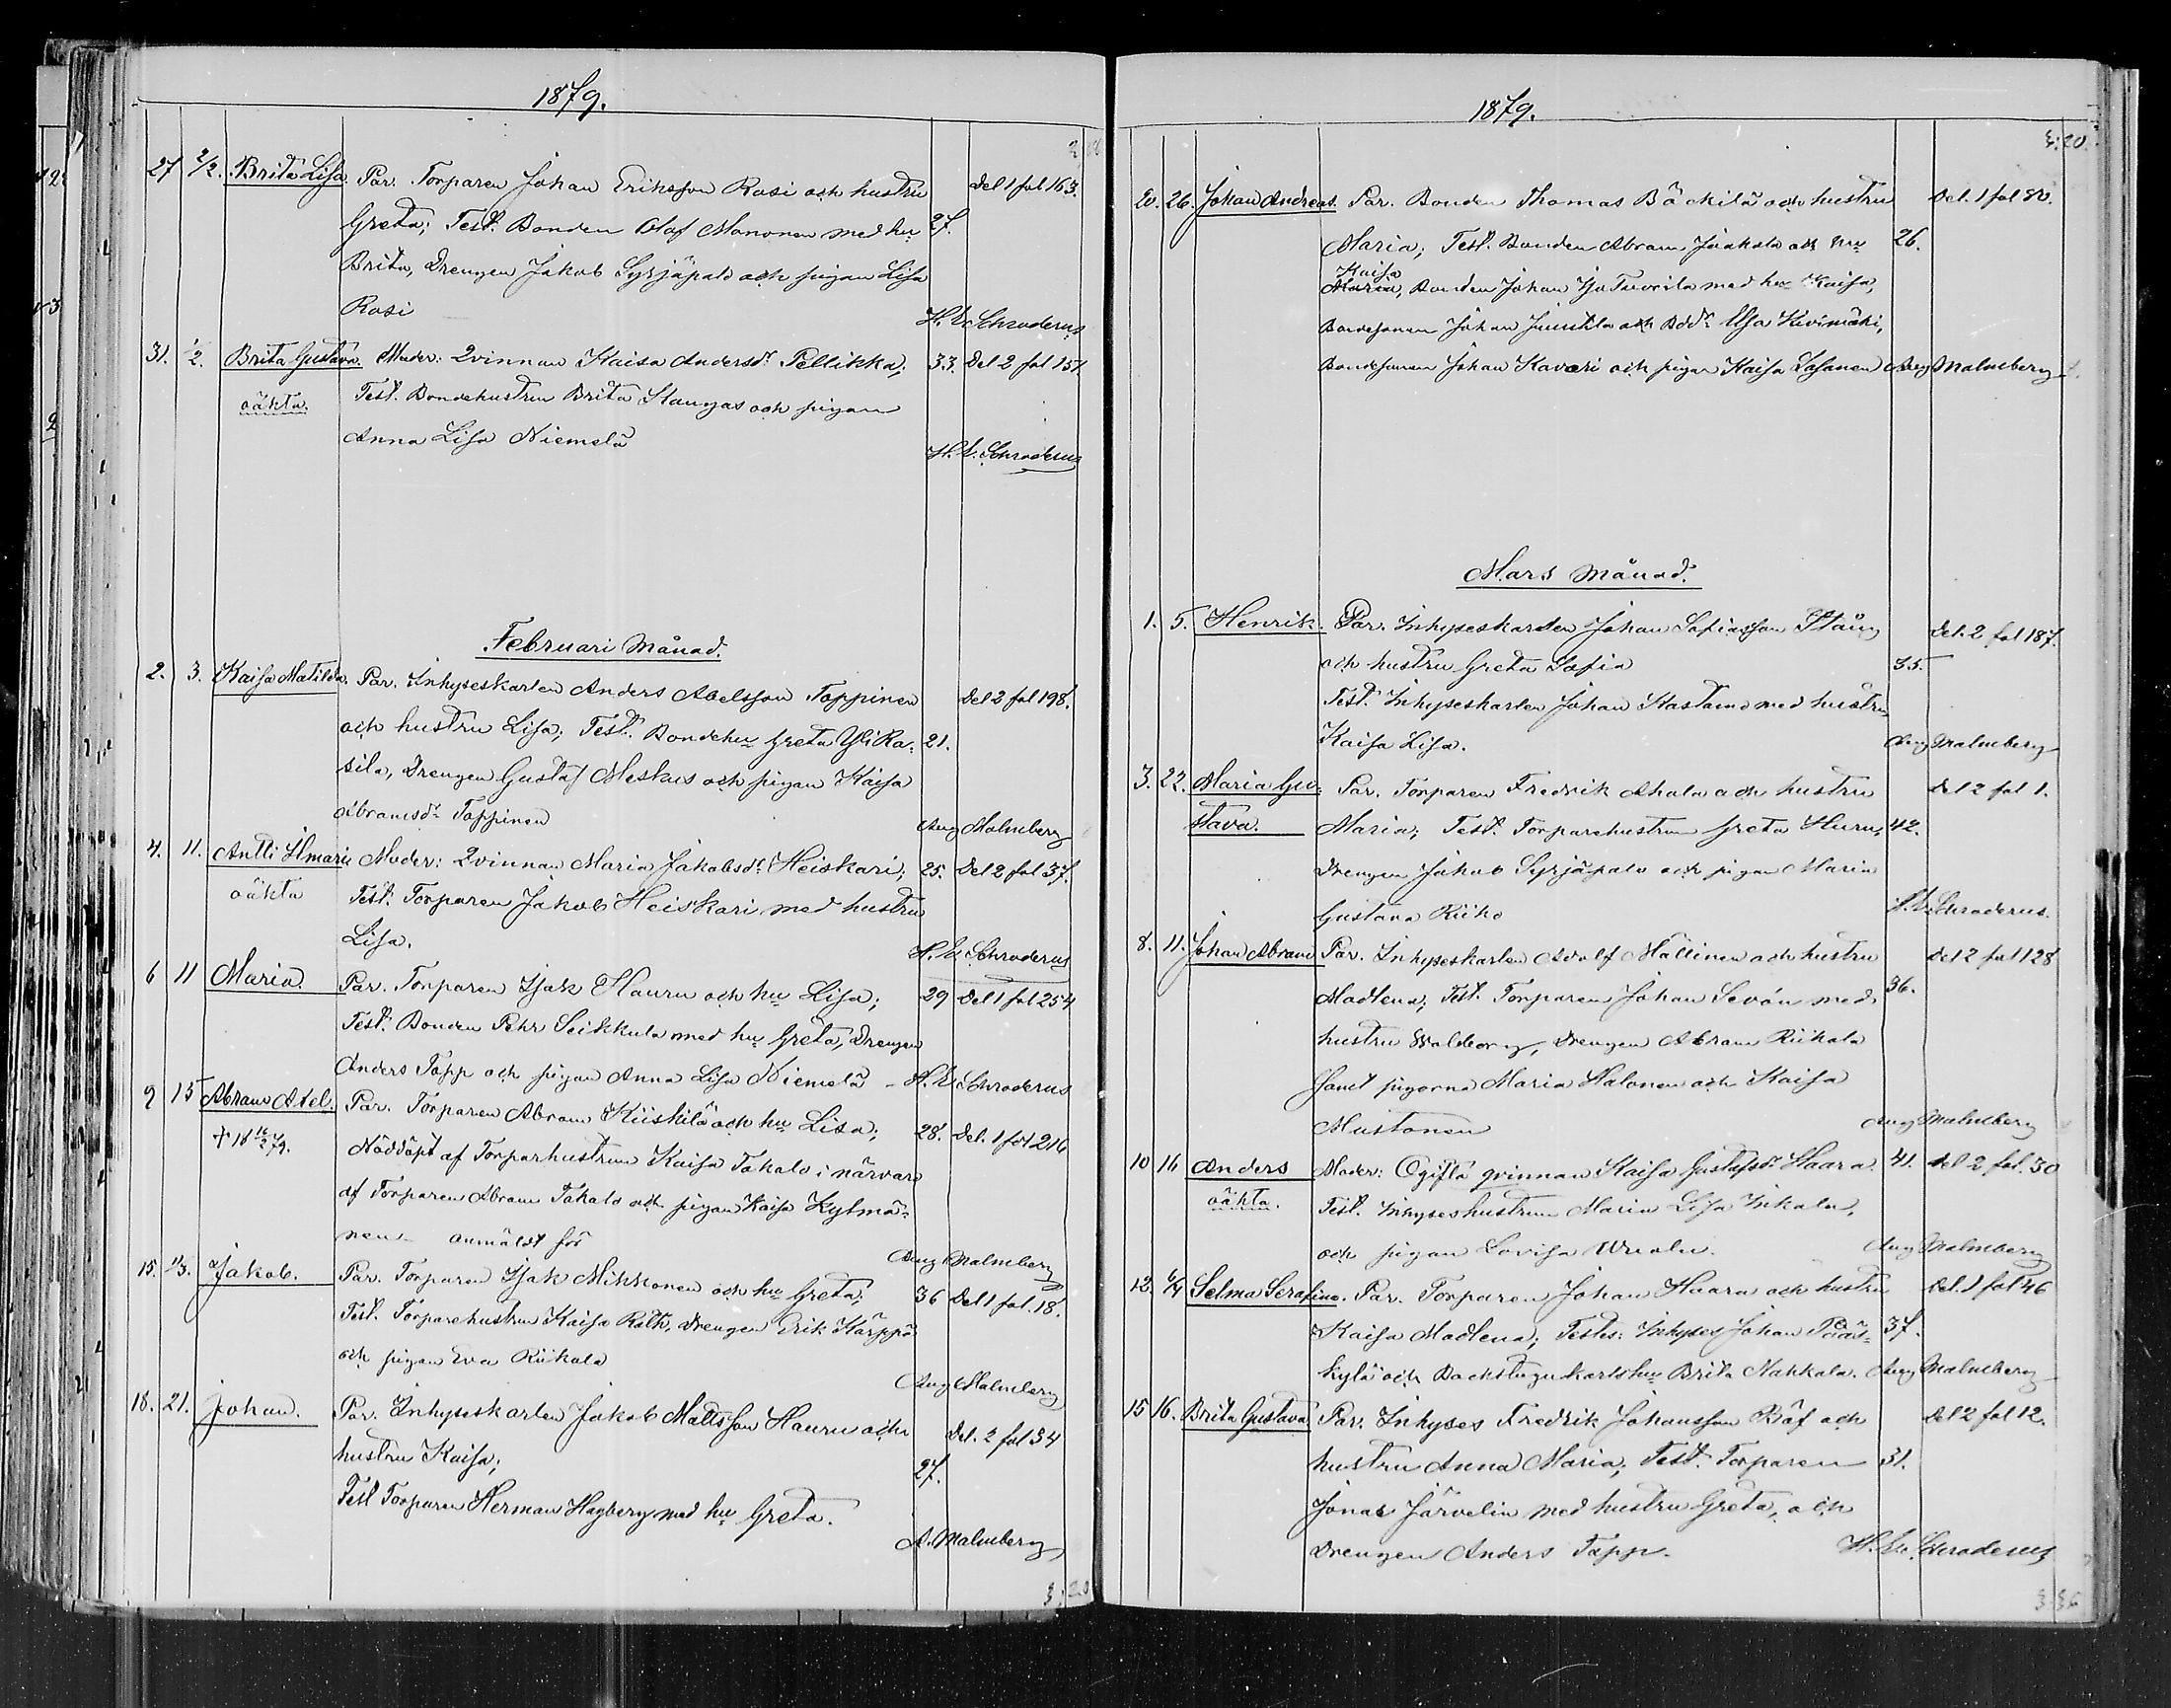 1879.
27 2/2. Brita Lisa. Par. Torparen Johan Eriksson Rasi och hustru Del 1 fol 163.
Greta; Test. Bonden Olof Manonen med hu 27.
Brita, Drengen Jakob Syrjäpalo och pigan Lisa
Rasi H. W. Schroderus
31. 1/2. Brita Gustava. Moder: Qvinnan Kaisa Andersdr Pellikka; 33. Del 2 fol 157.
oäkta. Test. Bondehustrun Brita Stangas och pigan
Anna Lisa Niemelä
H. W. Schroderus
Februari Månad.
2. 3. Kaisa Matilda. Par. Inhyseskarlen Anders Abelsson Toppinen Del 2 fol 198.
och hustru Lisa; Test. Bondehu Greta YliRa- 21.
sila, Drengen Gustaf Meskus och pigan Kaisa
Abramsdr Toppinen Aug Malmberg
4. 11. Antti Ilmari Moder: Qvinnan Maria Jakobsdr Heiskari; 25. Del 2 fol 37.
oäkta Test. Torparen Jakob Heiskari med hustru
Lisa. H. W. Schroderus
6 11 Maria. Par. Torparen Isak Hauru och hu Lisa; 29 Del 1 fol 254
Test. Bonden Pehr Seikkula med hu Greta, Drengen
Anders Topp och pigan Anna Lisa Niemelä - H. W. Schroderus
9 15 Abram Axel. Par. Torparen Abram Kiiskilä och hu Lisa; 28. Del. 1 fol 216
+ 18 16/2 79. Nöddöpt af Torparhustrun Kaisa Takalo i närvaro
af Torparen Abram Takalo och pigan Kaisa Kylmä-
nen - anmäldt för Aug Malmberg
15. 1/3. Jakob. Par. Torparen Isak Mikkonen och hu Greta; 36 Del 1 fol. 18.
Test. Torparehustrun Kaisa Rath, Drengen Erik Karppa
och pigan Eva Riikala
Aug Malmberg
18. 21. Johan. Par. Inhyseskarlen Jakob Mattsson Hauru och Del. 2 fol 34
hustru Kaisa; 27.
Test Torparen Herman Hagberg med hu Greta.
A. Malmberg
3:20
1879.
3:20.
20. 26. Johan Andreas. Par. Bonden Thomas Bäckilä och hustru Del. 1 fol 80.
Maria; Test. Bonden Abram Jaakola och hu 26.
Kaisa
Maria, Bonden Johan Iso Tuorila med hu Kaisa,
Bondesonen Johan Junttila och Bddr Elsa Kivimäki,
Bondesonen Johan Kavari och pigan Kaisa Lasanen Aug Malmberg
Mars Månad.
1. 5. Henrik. Par. Inhyseskarlen Johan Sofiasson Stång Del. 2 fol 187.
och hustru Greta Sofia 35.
Test. Inhyseskarlen Johan Kastamo med hustru
Kaisa Lisa. Aug Malmberg
3. 22. Maria Gu- Par. Torparen Fredrik Ahola och hustru Del 2 fol 1.
stava. Maria; Test. Torparehustrun Greta Huru, 42.
Drengen Jakob Syrjäpalo och pigan Maria
Gustava Riiho H. W. Schroderus.
8. 11. Johan Abram Par. Inhyseskarlen Adolf Mällinen och hustru Del 2 fol 128
Madlena; Test. Torparen Johan Sevón med 36.
hustru Walborg, Drengen Abram Riikala
samt pigorna Maria Halonen och Kaisa
Mustonen Aug Malmberg
10 16 Anders Moder: Ogifta qvinnan Kaisa Gustafsdr Haara. 41. Del 2 fol. 30
oäkta. Test. Inhyseshustrun Maria Lisa Inkala,
och pigan Lovisa Aug Malmberg
12. 6/4 Selma Serafina. Par. Torparen Johan Haara och hustru Del. 1 fol 46
Kaisa Madlena; Testes: Inhyses Johan Pääs- 37.
kylä och Backstugukarls hu Brita Nahkala. Aug Malmberg
15 16. Brita Gustava Par. Inhyses Fredrik Johansson Räf och Del 2 fol 12.
hustru Anna Maria; Test. Torparen 31.
Jonas Järvelin med hustru Greta, och
Drengen Anders Topp. H. W. Schroderus
3:36